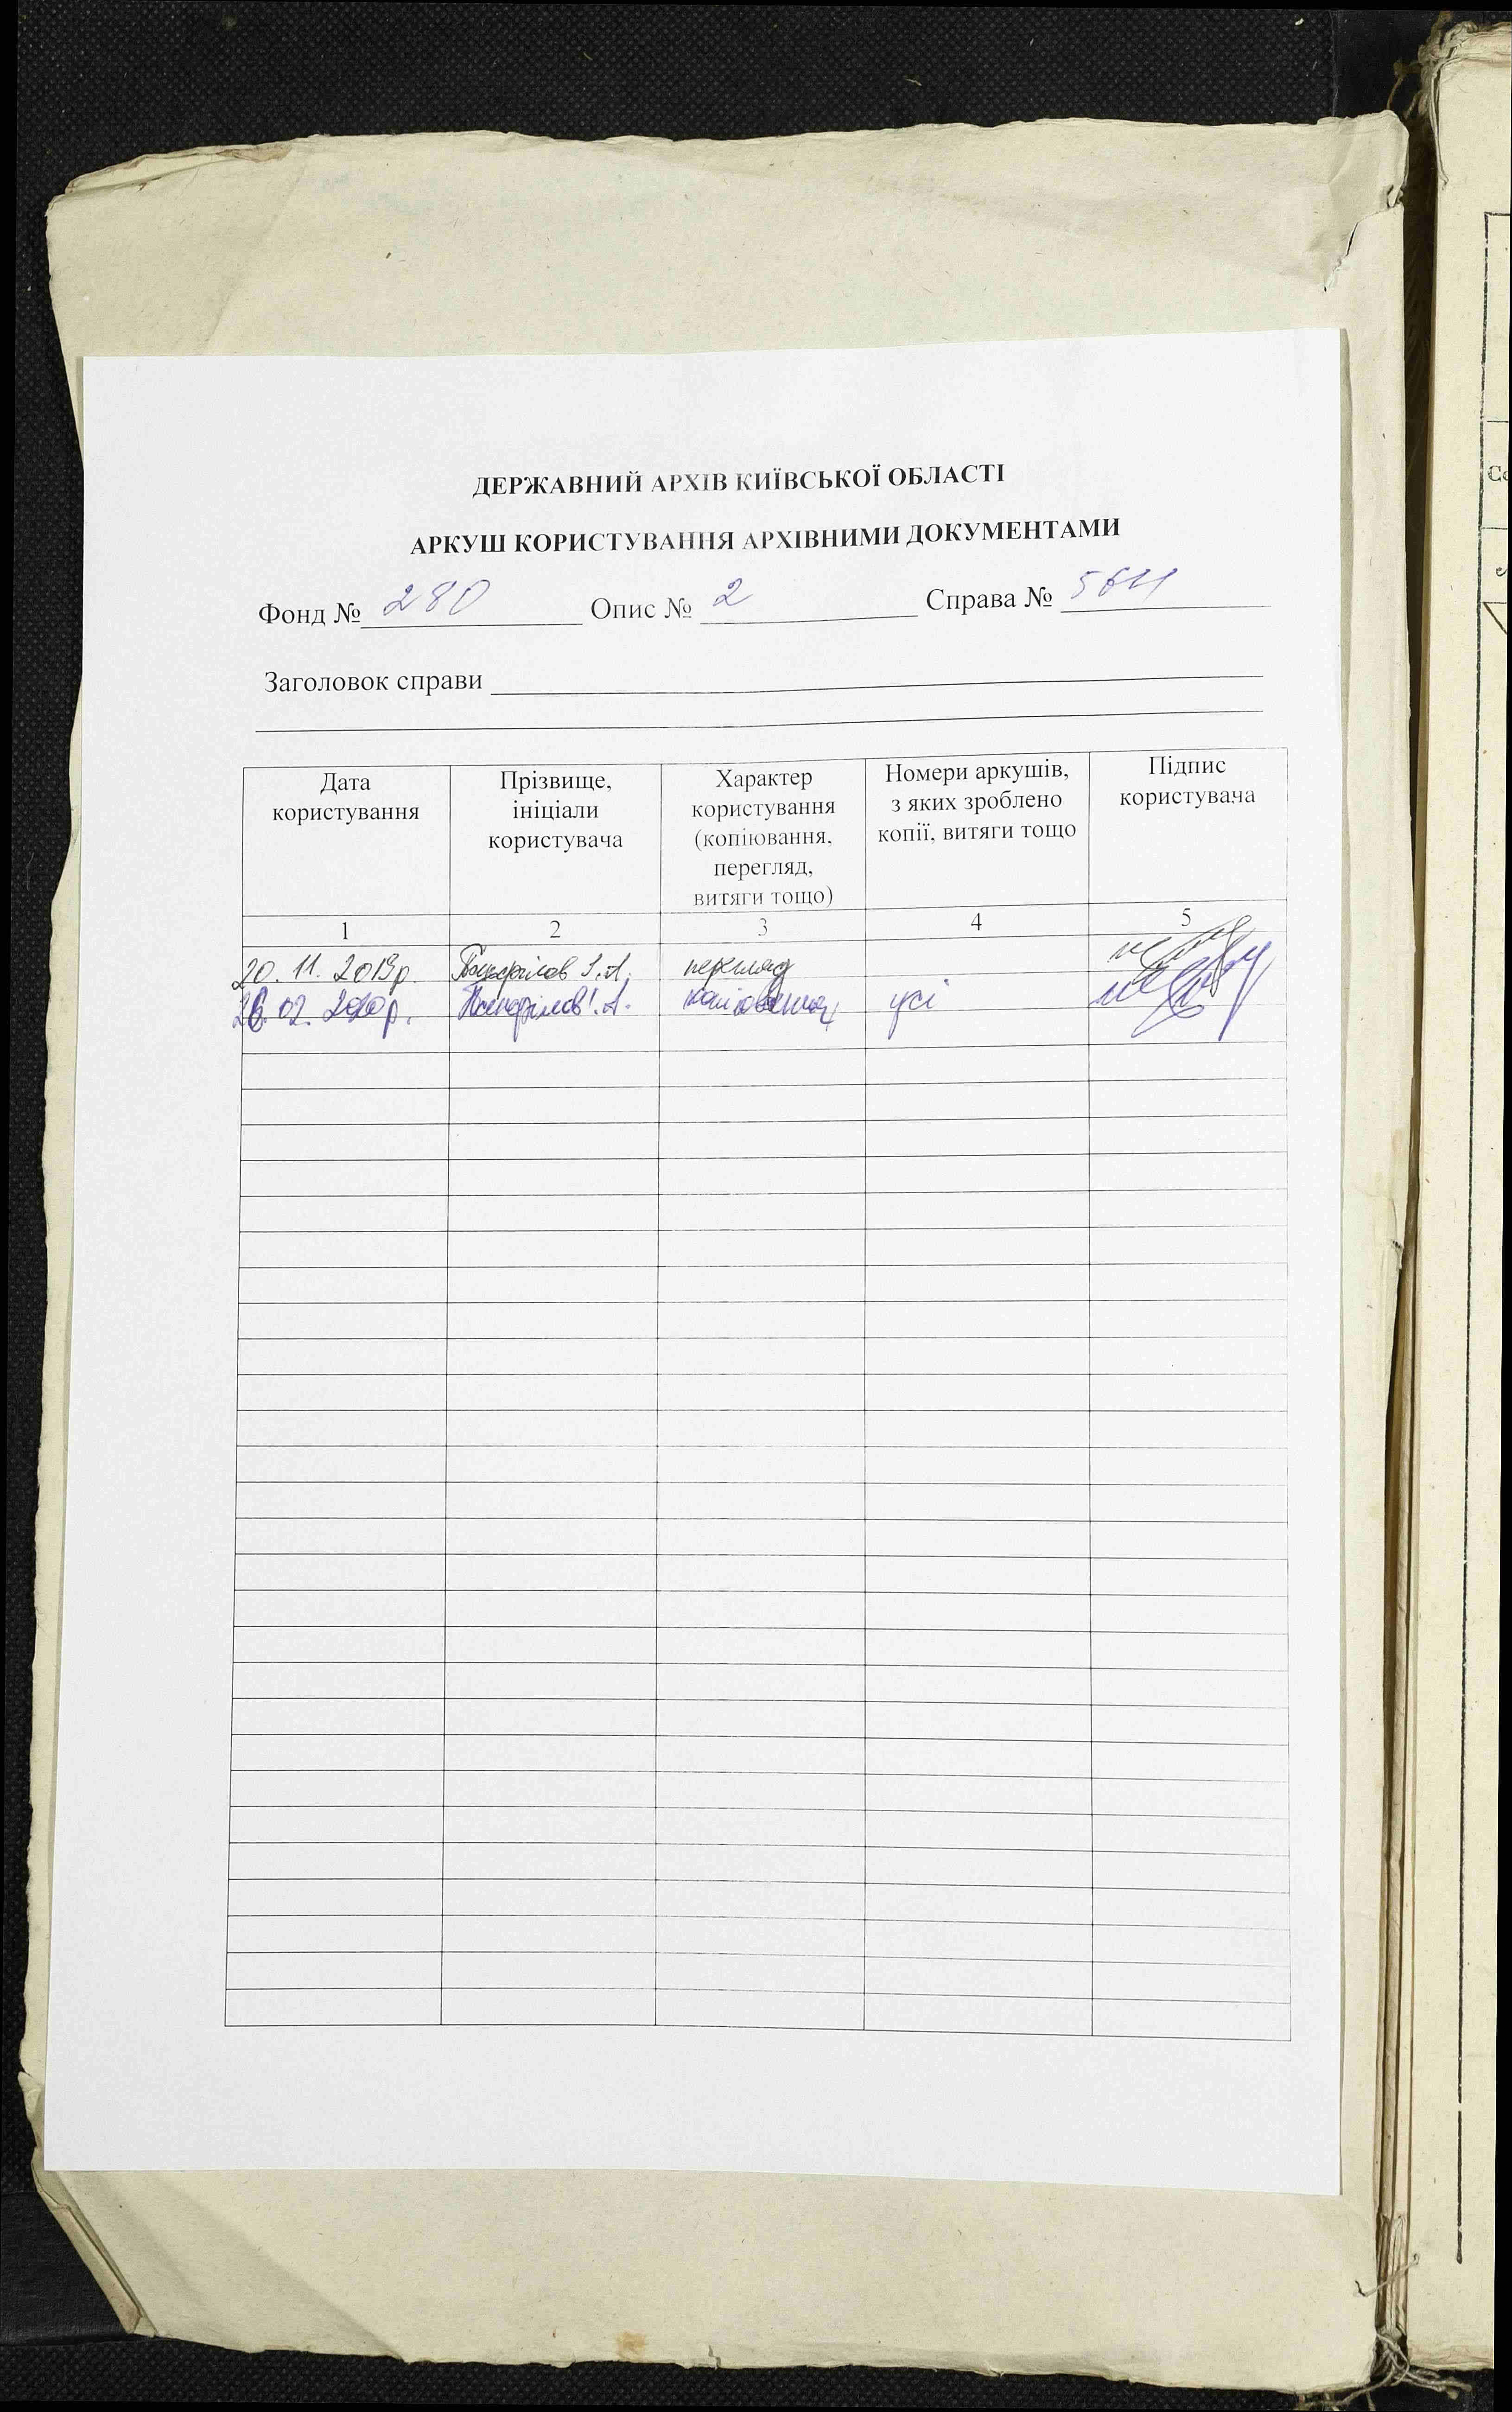 ДЕРЖАВНИЙ АРХІВ КИЇВСЬКОЇ ОБЛАСТІ
АРКУШ КОРИСТУВАННЯ АРХІВНИМИ ДОКУМЕНТАМИ
Фонд № 280 Опис № 2 Справа №
Заголовок справи
Дата користування
Прізвище, ініціали користувача
Характер користування (копіювання, перегляд, витяги тощо)
Номери аркушів, з яких зроблено копії, витяги тощо
Підпис користувача
1 2 3 4 5
20. 11. 2019р. перегляд
02. 2020р. копіювання усі